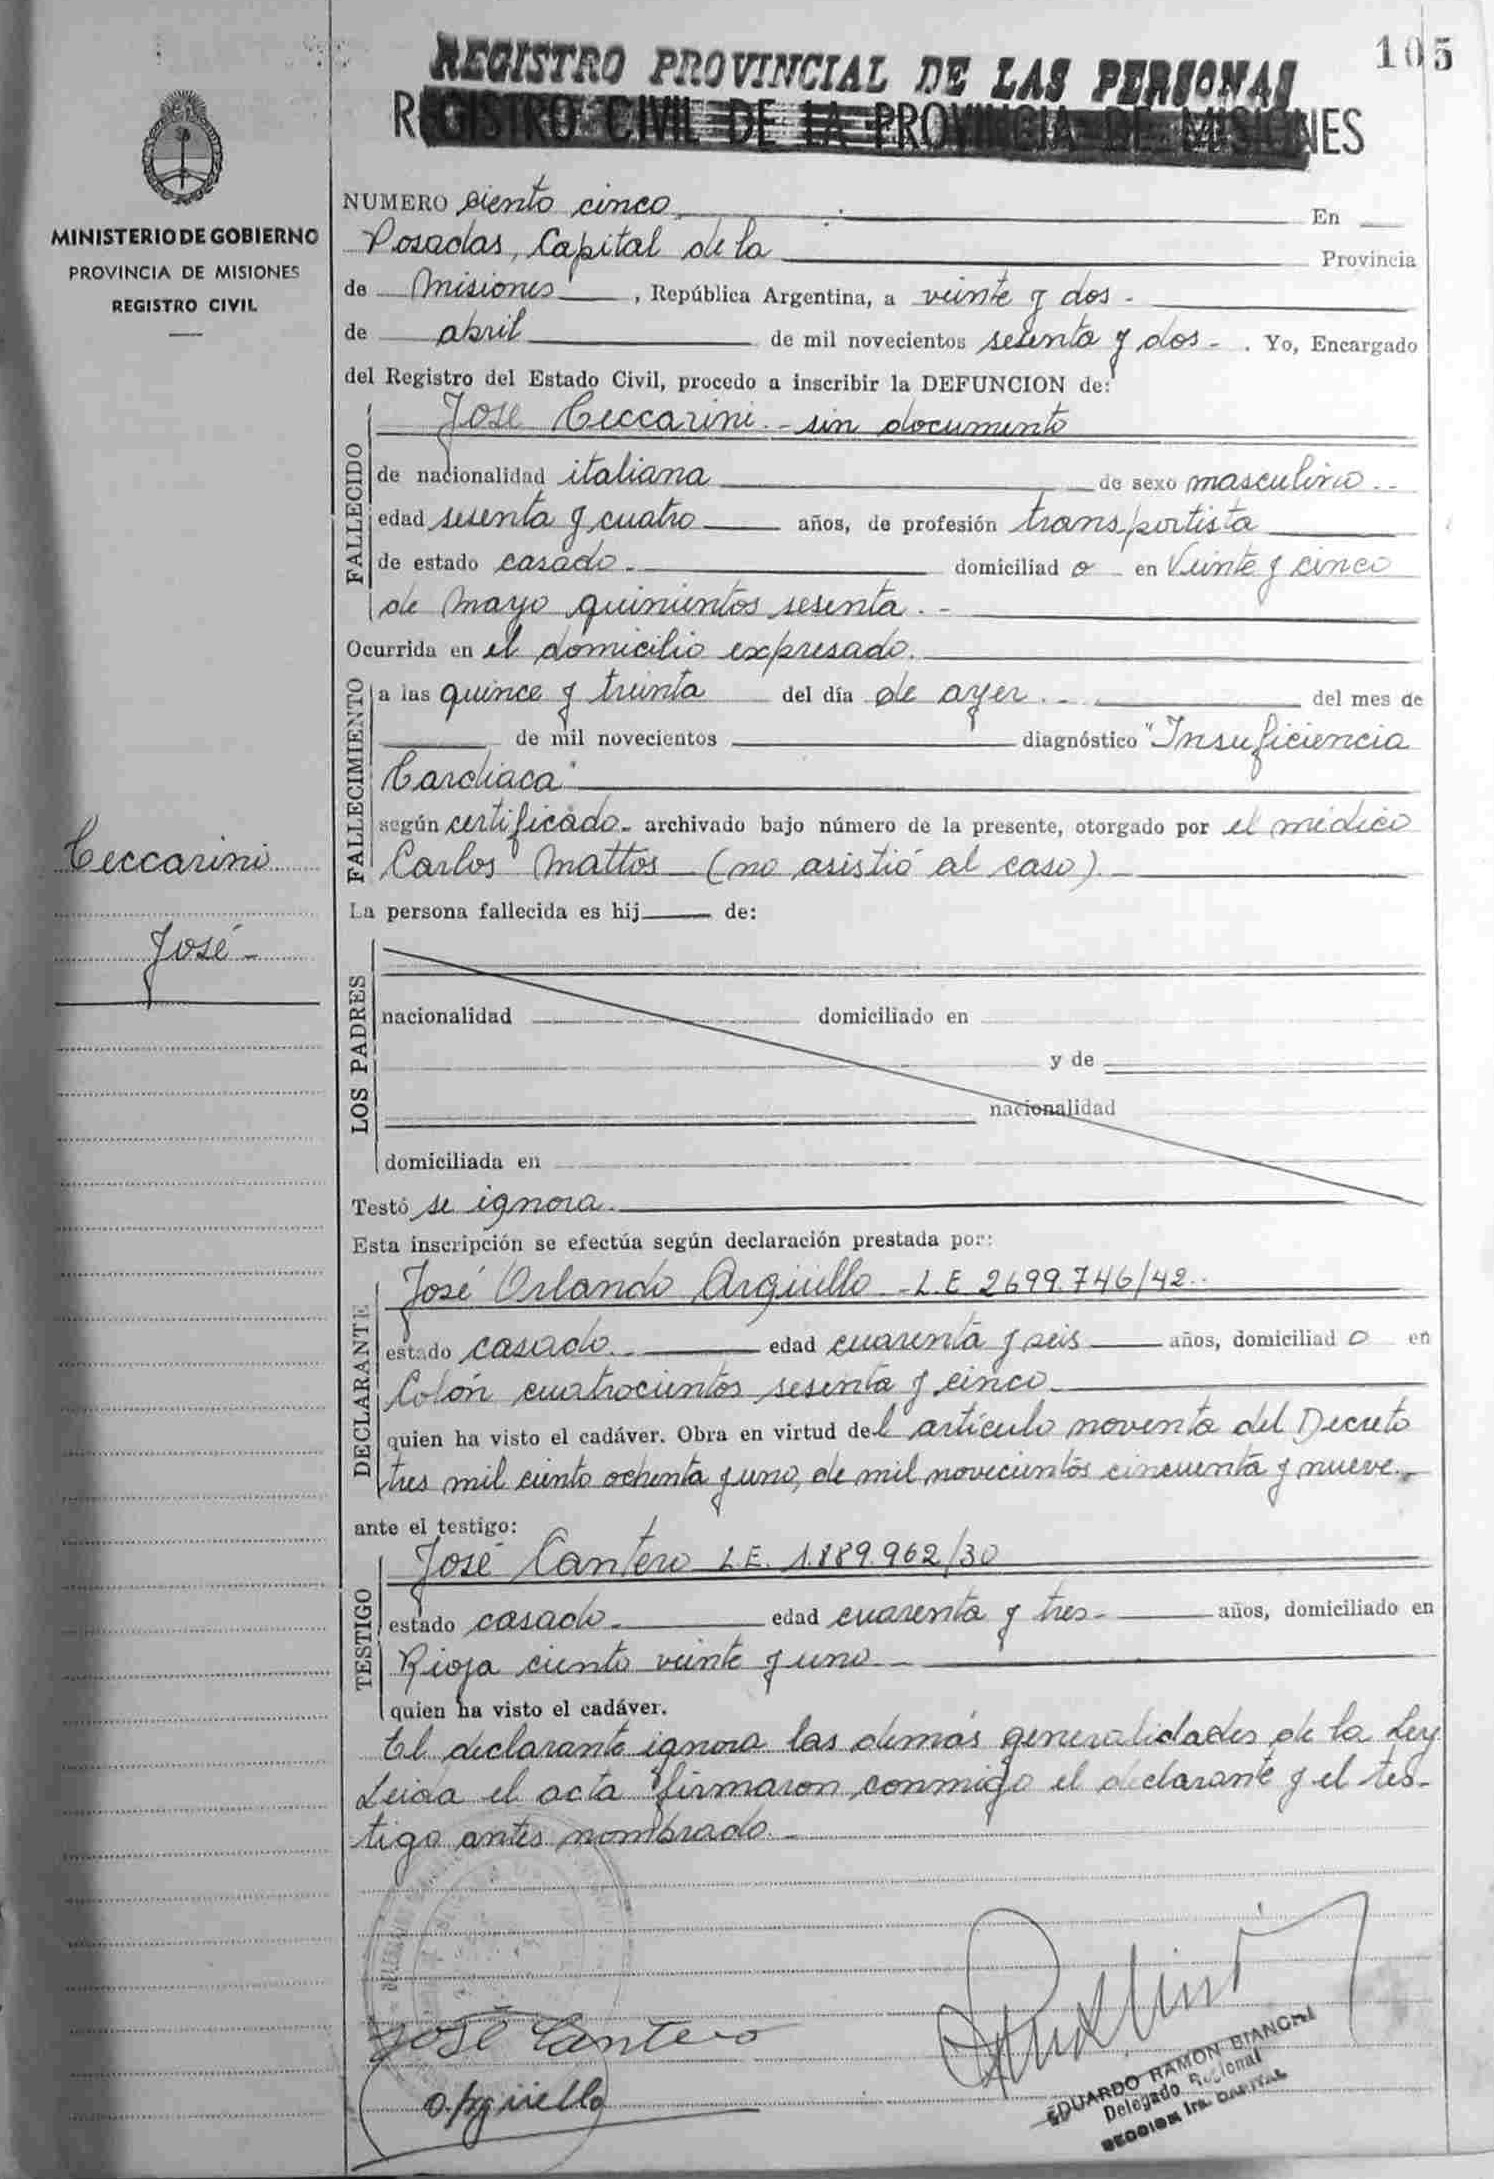 105
REGISTRO PROVINCIAL DE LAS PERSONAS
REGISTRO CIVIL DE LA PROVINCIA DE MISIONES
MINISTERIO DE GOBIERNO
PROVINCIA DE MISIONES
REGISTRO CIVIL
NUMERO ciento cinco En
Posadas, Capital de la Provincia
de Misiones, República Argentina, a veinte y dos -
de abril de mil novecientos sesenta y dos - . Yo, Encargado
del Registro del Estado Civil, procedo a inscribir la DEFUNCION de:
José Ceccarini - sin documento
FALLECIDO
de nacionalidad italiana de sexo masculino -
edad sesenta y cuatro años, de profesión transportista
de estado casado - domiciliad o en Veinte y cinco
de Mayo quinientos sesenta . -
Ocurrida en el domicilio expresado.
FALLECIMIENTO
a las quince y treinta del día de ayer . - del mes de
de mil novecientos diagnóstico "Insuficiencia
Cardiaca"
según certificado - archivado bajo número de la presente, otorgado por el médico
Carlos Mattos (no asistió al caso) -
Ceccarini
José -
La persona fallecida es hij de:
LOS PADRES
nacionalidad domiciliado en
y de
nacionalidad
domiciliada en
Testó se ignora.
Esta inscripción se efectúa según declaración prestada por:
José Orlando Argüello - L.E 2699.746/42 -
DECLARANTE
estado casado - edad cuarenta y seis años, domiciliad o en
Colón cuatrocientos sesenta y cinco
quien ha visto el cadáver. Obra en virtud del artículo noventa del Decreto
tres mil ciento ochenta y uno, de mil novecientos cincuenta y nueve. -
ante el testigo:
José Cantero L.E. 1.889.962/30
TESTIGO
estado casado - edad cuarenta y tres - años, domiciliado en
Rioja ciento veinte y uno -
quien ha visto el cadáver.
El declarante ignora las demás generalidades de la Ley
Leida el acta firmaron conmigo el declarante y el tes-
tigo antes nombrado. -
José Cantero
Argüello
EDUARDO RAMON BIANCHI
Delegado Regional
SECCION 1ra. CAPITAL